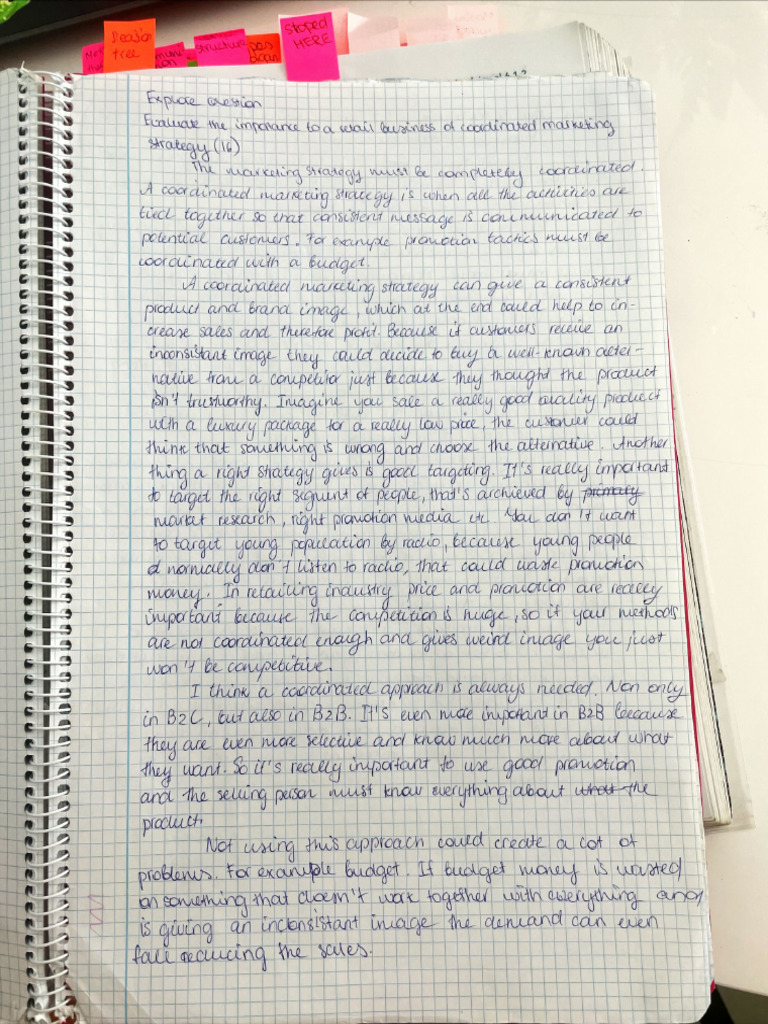 Decision
tree
structure
Stoped
HERE
Explore question
Evaluate the importance to a retail business of coordinated marketing
strategy (16)
The marketing strategy must be completely coordinated.
A coordinated marketing strategy is when all the activities are
tied together so that consistent message is communicated to
potential customers. For example promotion tactics must be
coordinated with a budget.
A coordinated marketing strategy can give a consistent
product and brand image, which at the end could help to in-
crease sales and therefore profit. Because if customers receive an
inconsistant image they could decide to buy a well-known alter-
native from a competitor just because they thought the product
isn't trustworthy. Imagine you sale a really good quality product
with a luxury package for a really low price, the customer could
think that something is wrong and choose the alternative. Another
thing a right strategy gives is good targeting. It's really important
to target the right segment of people, that's archieved by primary
market research, right promotion media etc. You don't want
to target young population by radio, because young people
normally don't listen to radio, that could waste promotion
money. In retailing industry price and promotion are really
important because the competition is huge, so if your methods
are not coordinated enough and gives weird image you just
won't be competitive.
I think a coordinated approach is always needed. Non only
in B2C, but also in B2B. It's even more important in B2B because
they are even more selective and know much more about what
they want. So it's really important to use good promotion
and the selling person must know everything about what the
product.
Not using this approach could create a lot of
problems. For example budget. If budget money is wasted
on something that doesn't work together with everything and
is giving an inconsistant image the demand can even
fall reducing the sales.